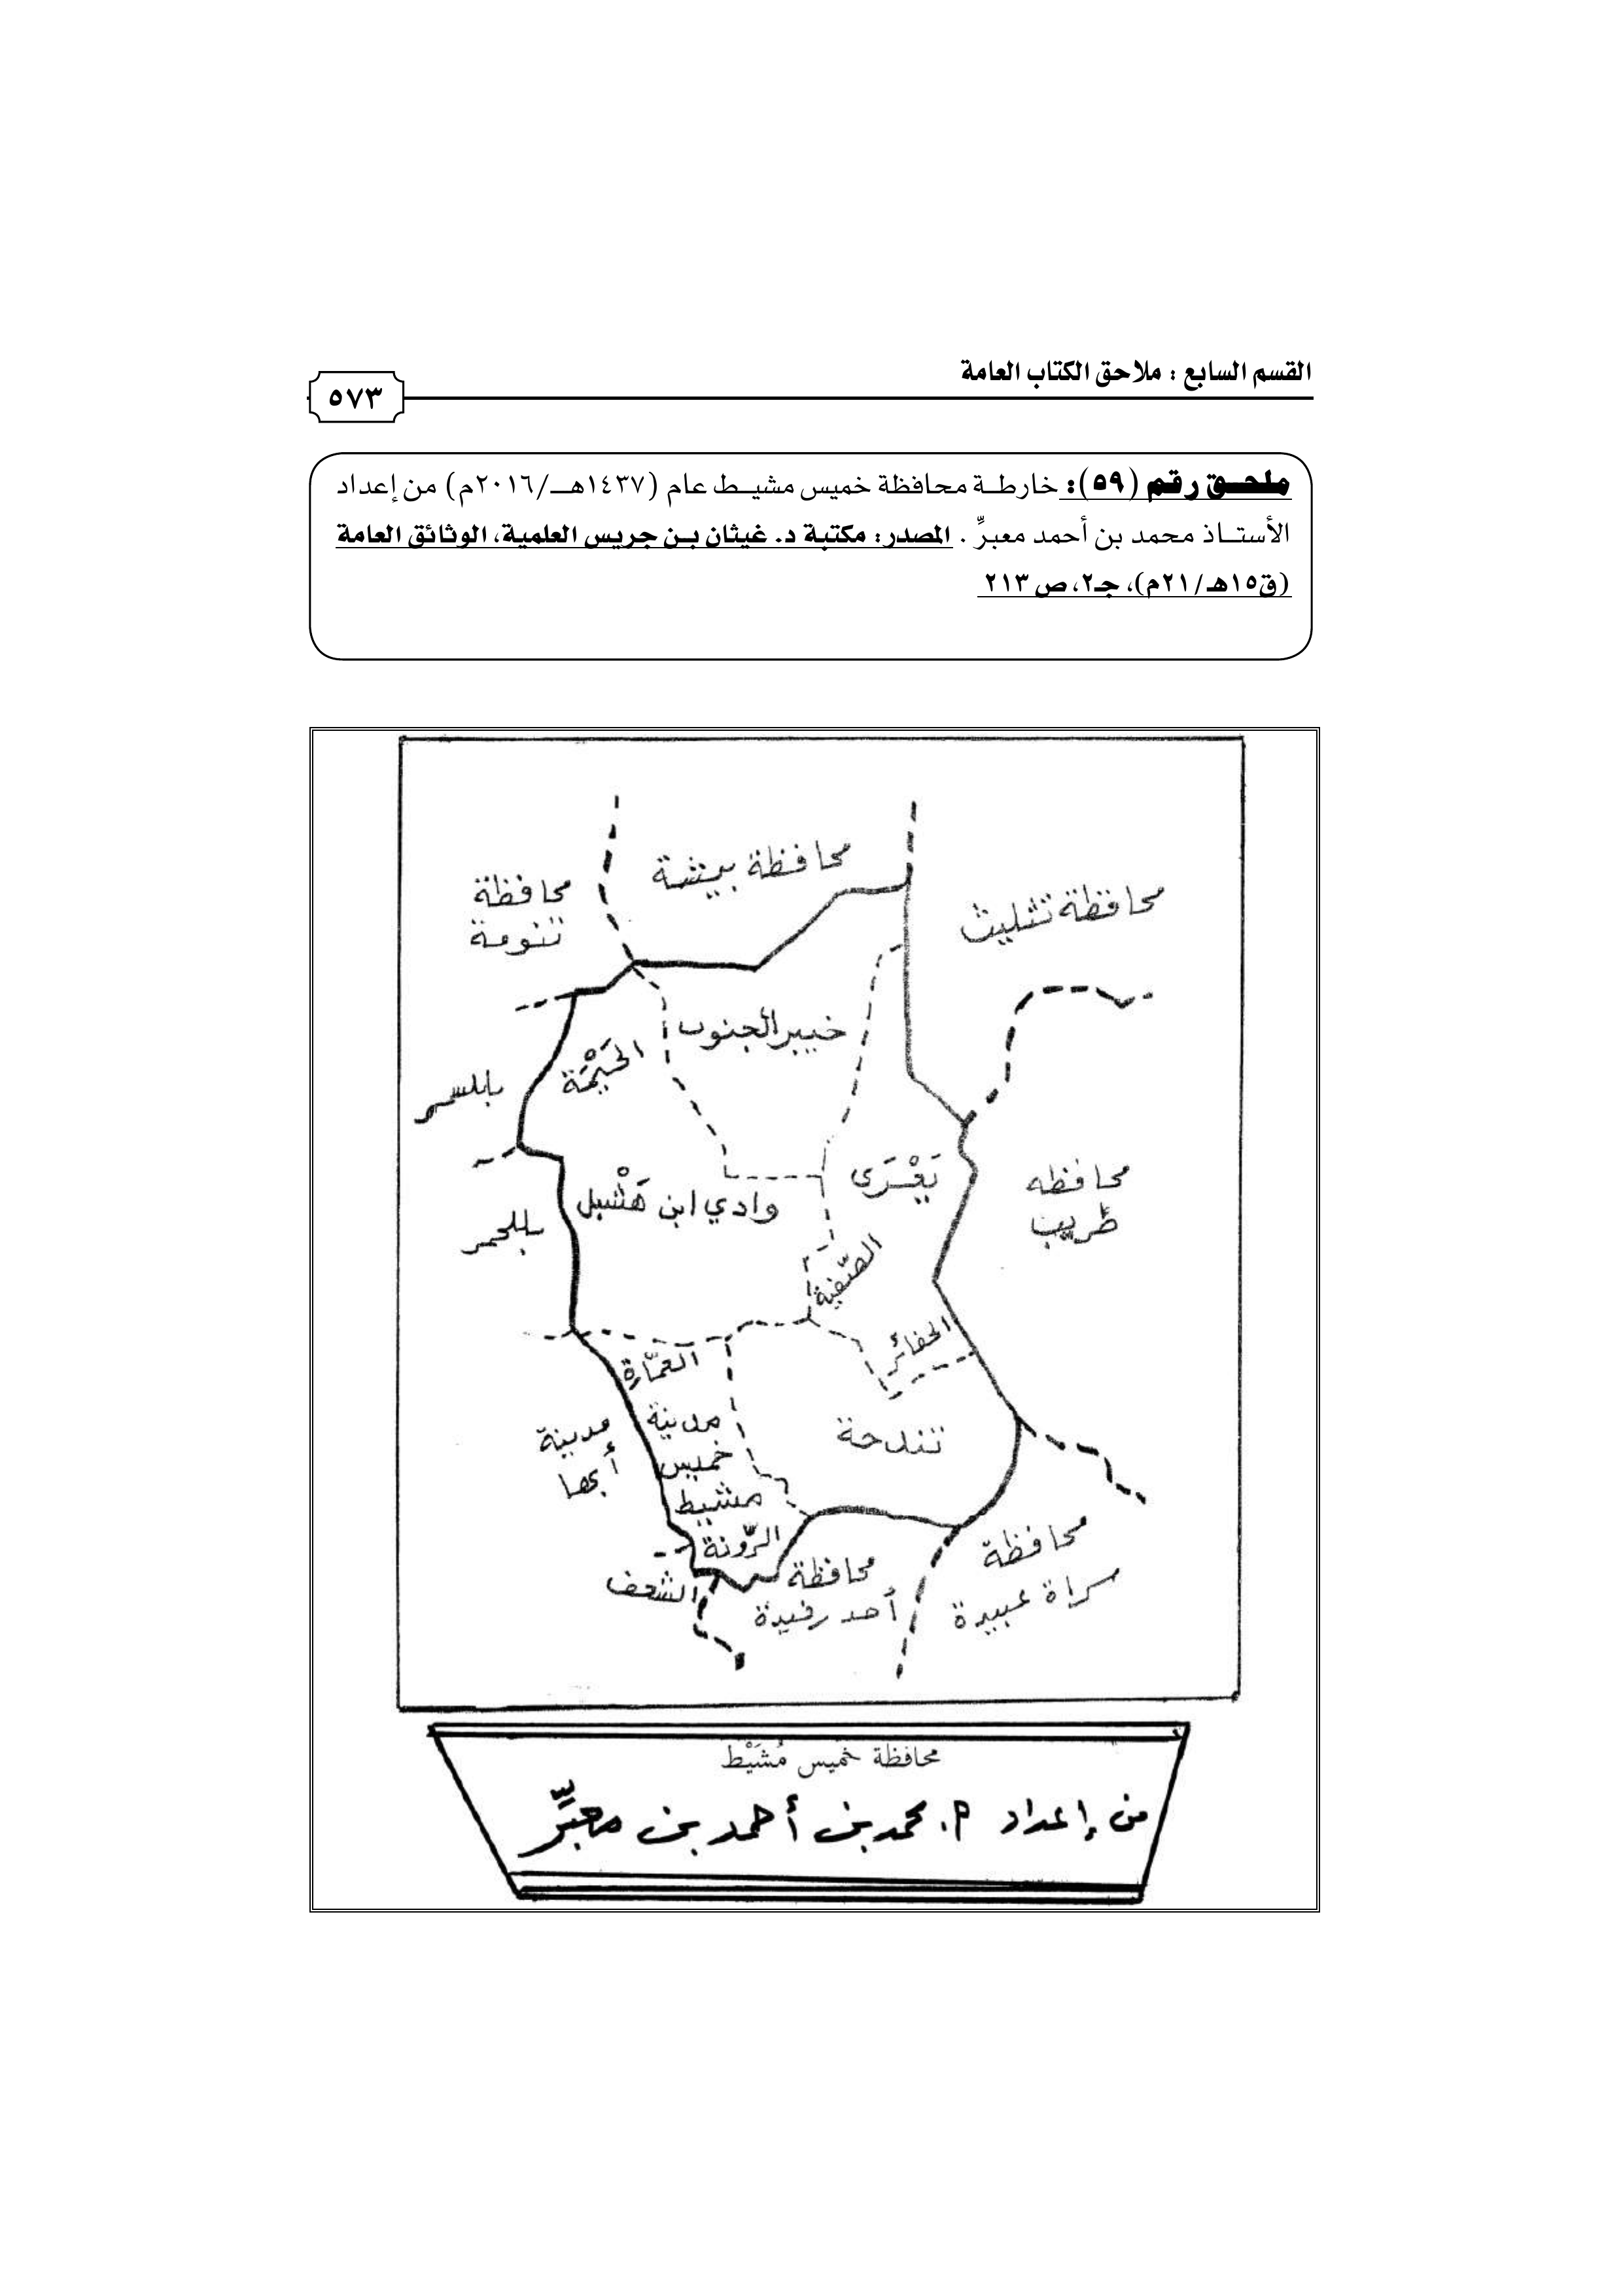 القسم السابع : ملاحق الكتاب العامة
٥٧٣
ملحق رقم (٥٩): خارطة محافظة خميس مشيط عام (١٤٣٧هـ/٢٠١٦م) من إعداد
الأستاذ محمد بن أحمد معبرِّ . المصدر: مكتبة د. غيثان بن جريس العلمية، الوثائق العامة
(ق١٥هـ/٢١م)، جـ٢، ص ٢١٣
محافظة بيشة
محافظة
تنومة
محافظة تثليث
خيبر الجنوب
الحَيْمَة
بللسمر
يَعْرَى
محافظه
طريب
وادي ابن هَشْبل
بللحمر
الصّفية
الحفائر
العمّارة
مدينة
أبها
مدينة
خميس
مشيط
تندحة
الرّونة
الشعف
محافظة
أحد رفيدة
محافظة
سراة عبيدة
محافظة خميس مُشَيْط
من إعداد م. محمد بن أحمد بن معبِّر